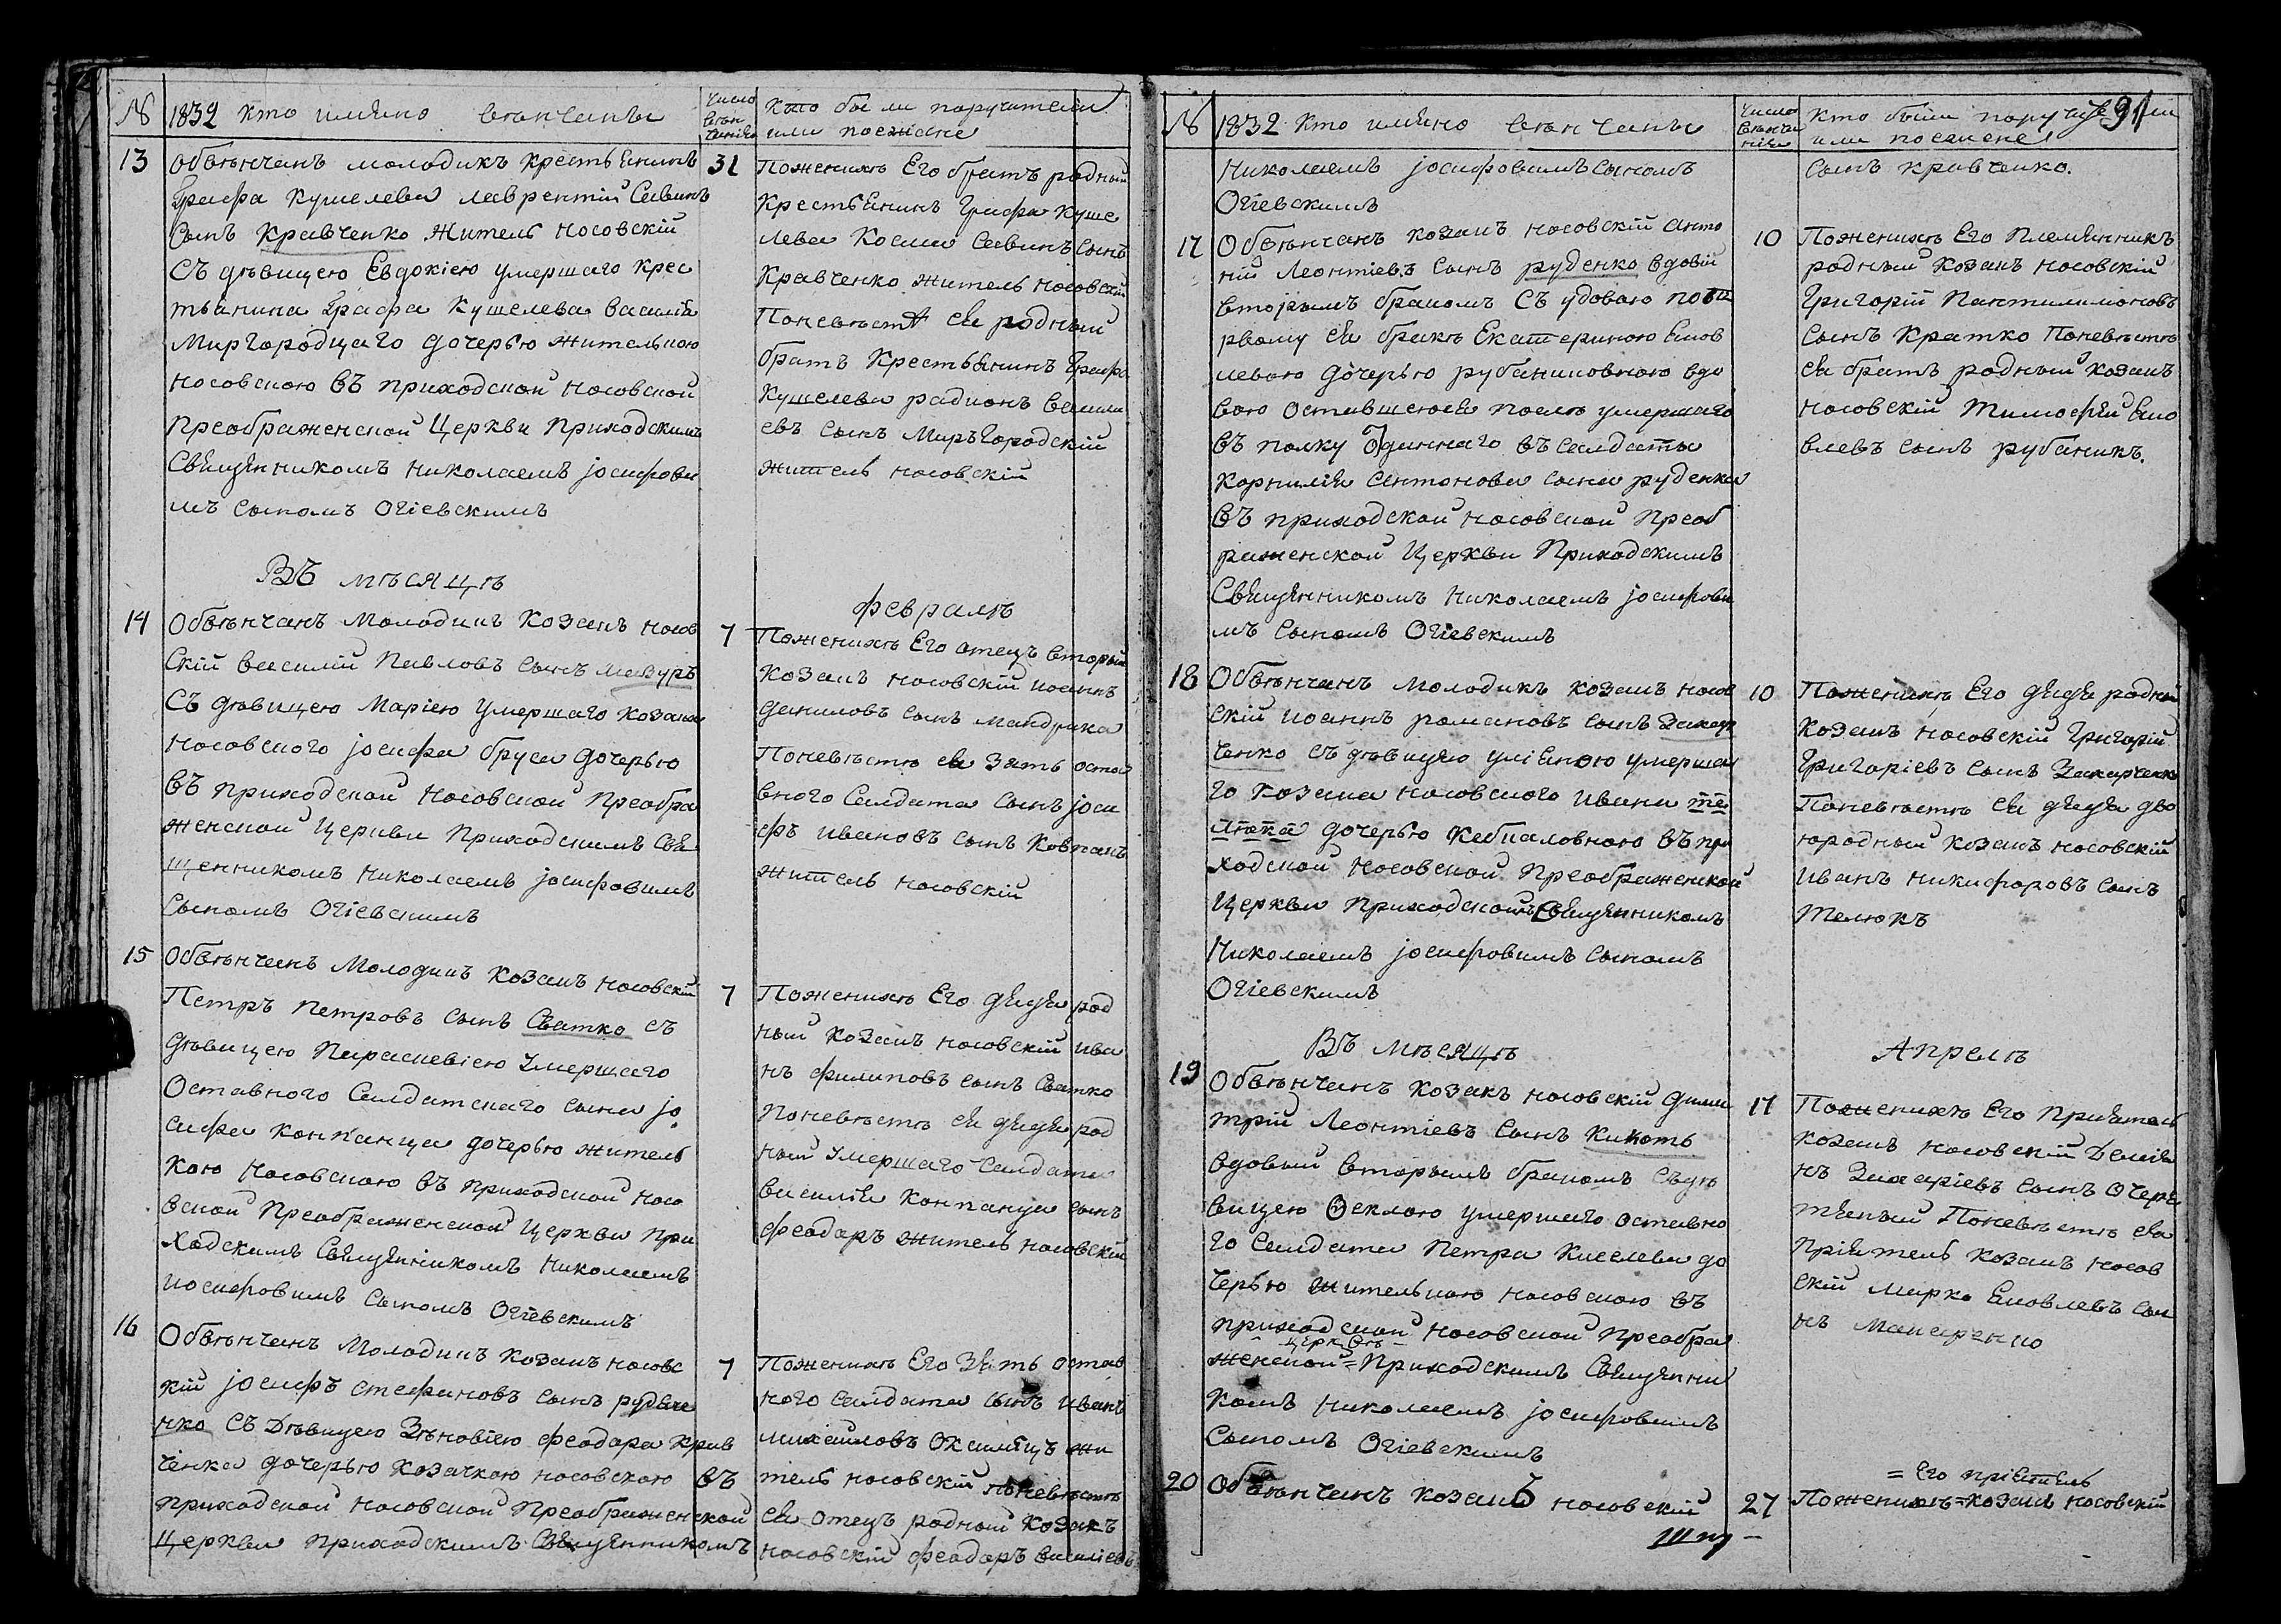 № 1832 кто имяно венчаны
число венчания
кто были поручители или поезжане
13 Обвѣнчанъ молодикъ крестьянинъ
Графа Кушелева Лаврентій Савинъ
сынъ Кравченко житель носовскій
съ дѣвицею Евдокіею умершаго крес
тьянина Графа Кушелева Василія
Миргородцаго дочерью жителькою
носовскою въ приходской носовской
Преображенской Церкви Приходскимъ
Священникомъ Николаемъ іосифови
мъ сыномъ Огіевскимъ
31
Поженихѣ Его братъ родный
Крестьянинъ Графа Куше
лева Косма Савинъ сынъ
Кравченко житель носовскій
Поневѣстѣ ея родный
братъ Крестьянинъ Графа
Кушелева радионъ Васили
евъ сынъ Миръгородскій
житель носовскій
Въ мѣсяцѣ
февралѣ
14 Обвѣнчанъ Молодикъ Козакъ носов
скій василій Павловъ сынъ мазуръ
Съ дѣвицею Маріею умершаго козака
носовского іосифа бруса дочерью
въ приходской носовской Преобра
женской Церкви Приходскимъ Свя
щенникомъ Николаемъ іосифовимъ
сыномъ Огіевскимъ
7
Поженихѣ Его отецъ вторый
козакъ носовскій иоаннъ
даниловъ сынъ мандрика
Поневѣстѣ ея зять оста
вного Салдата сынъ іоси
фъ ивановъ сынъ Ковпакъ
житель носовскій
15 Обвѣнчанъ Молодикъ козакъ носовскій
Петръ Петровъ сынъ Сватко съ
дѣвицею Параскевіею Умершаго
Оставного Салдатскаго сына іо
сифа конпанца дочерью житель
кою носовскою въ приходской носо
вской Преображенской церкви При
ходскимъ Священикомъ Николаемъ
иосифовимъ сыномъ Огіевскимъ
7
Поженихѣ Его дядя род
ный козакъ носовскій ива
нъ филиповъ сынъ Сватко
Поневѣстѣ ея дядя род
ный Умершаго Салдата
василія конпанца сынъ
феодаръ житель носовскій
16 Обвѣнчанъ Молодикъ козакъ носовс
кій іосифъ стефановъ сынъ рудяче
нко съ Дѣвицею Зѣновією феодара крав
ченка дочерью козачкою носовскою въ
приходской носовской Преображенской
Церкви приходскимъ Священникомъ
7
Поженихѣ Его Зять остав
ного салдата сынъ иванъ
михайловъ жи
тель носовскій поневѣстѣ
ея отецъ родный козакъ
носовскій феодаръ василіевъ
№ 1832 Кто имяно венчаны
число венчания
Кто были поручители или поезжане
91
Николаемъ іосифовимъ сыномъ
Огіевскимъ
сынъ Кравченко.
17 Обвѣнчанъ козакъ носовскій анто
ній Леонтіевъ сынъ руденко вдовій
вторымъ бракомъ съ удовою попе
рвому ея бракѣ Екатериною Яков
левою дочерью рубаниковною вдо
вою оставшеюся послѣ умершаго
въ полку Одиннаго въ салдаты
корнилія антонова сына руденка
въ приходской носовской Преоб
раженской Церкви Приходскимъ
Священникомъ Николаемъ іосифови
мъ сыномъ Огіевскимъ
10
Поженихѣ Его Племянникъ
родный козакъ носовскій
Григорій Пантилимоновъ
сынъ Кратко Поневѣстѣ
ея братъ родный козакъ
носовскій Тимофей Яко
влевъ сынъ рубаникъ.
18 Обвѣнчанъ молодикъ козакъ носов
скій иоаннъ романовъ сынъ Захар
ченко съ дѣвицею уліяною умерша
го козака носовского ивана те
люка дочерью кебкаловною въ при
ходской носовской Преображенской
Церкви приходскимъ Священникомъ
Николаемъ іосифовимъ сыномъ
Огіевскимъ
10
Поженихѣ Его дядя родный
Козакъ носовскій Григорій
Григоріевъ сынъ Захарченко
Поневѣстѣ ея дядя дво
юродный козакъ носовскій
иванъ никифоровъ сынъ
Телюкъ
Въ мѣсяцѣ
Апрелѣ
19 Обвѣнчанъ козакъ носовскій дими
трій Леонтіевъ сынъ Кикоть
вдовый вторымъ бракомъ съ дѣ
вицею Ѳеклою умершаго оставно
го Салдата Петра Киселева до
черью жителькою носовскою въ
приходской носовской Преобра
церквѣ
женской = Приходскимъ Священни
комъ Николаемъ іосифовимъ
сыномъ Огіевскимъ
17
Поженихѣ Его Пріятель
козакъ носовскій Демія
нъ Захаріевъ сынъ Очере
тяный Поневѣстѣ ея
Пріятель козакъ носов
скій Мирко Яковлевъ сы
нъ
20 Обвѣнчанъ козакъ носовскій
27
= Его пріятель
Поженихѣ = козакъ носовскій